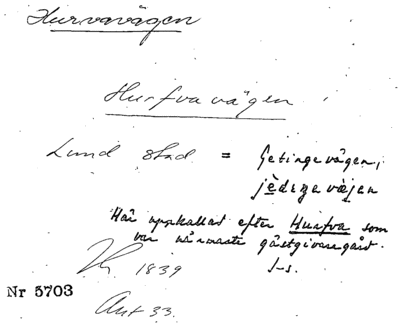 Hurvavägen
Hurfvavägen
Lund stad = Getingevägen,
jèdiŋevæjen
Här uppkallad efter Hurfva som
var närmaste gästgivaregård.
1839 J-s.
Nr 5703
Ant 33.